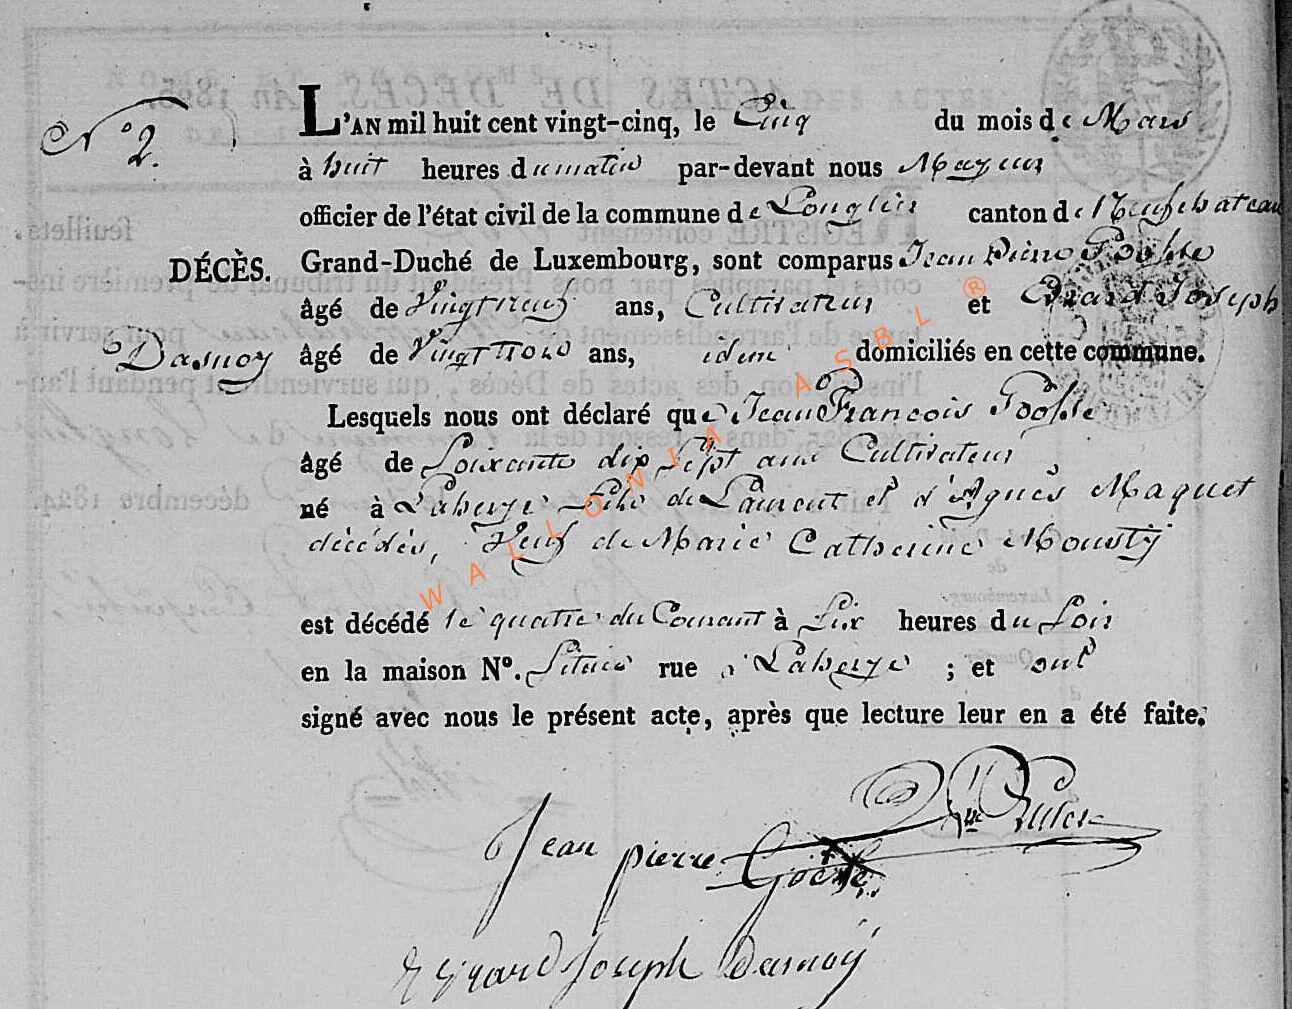 L'AN mil huit cent vingt-cinq, le Cinq du mois de Mars
N° 2.
à huit heures du matin par-devant nous Mayeur
officier de l'état civil de la commune de Longlier canton de Neufchateau
DÉCÈS.
Grand-Duché de Luxembourg, sont comparus Jean Pierre Goosse
âgé de Vingt neuf ans, Cultivateur et Erard Joseph
Dasnoy
âgé de Vingt trois ans, idem domiciliés en cette commune.
Lesquels nous ont déclaré que Jean François Goosse
âgé de Soixante dix Sept ans Cultivateur
né à Laherie fils de Laurent et d'Agnès Maquet
décédés, Veuf de Marie Catherine Mousty
est décédé le quatre du Courant à Six heures du Soir
en la maison N°. Située rue à Laherie ; et ont
signé avec nous le présent acte, après que lecture leur en a été faite.
Jean pierre Goosse
Erard Joseph Dasnoy
WALLONIA ASBL ®